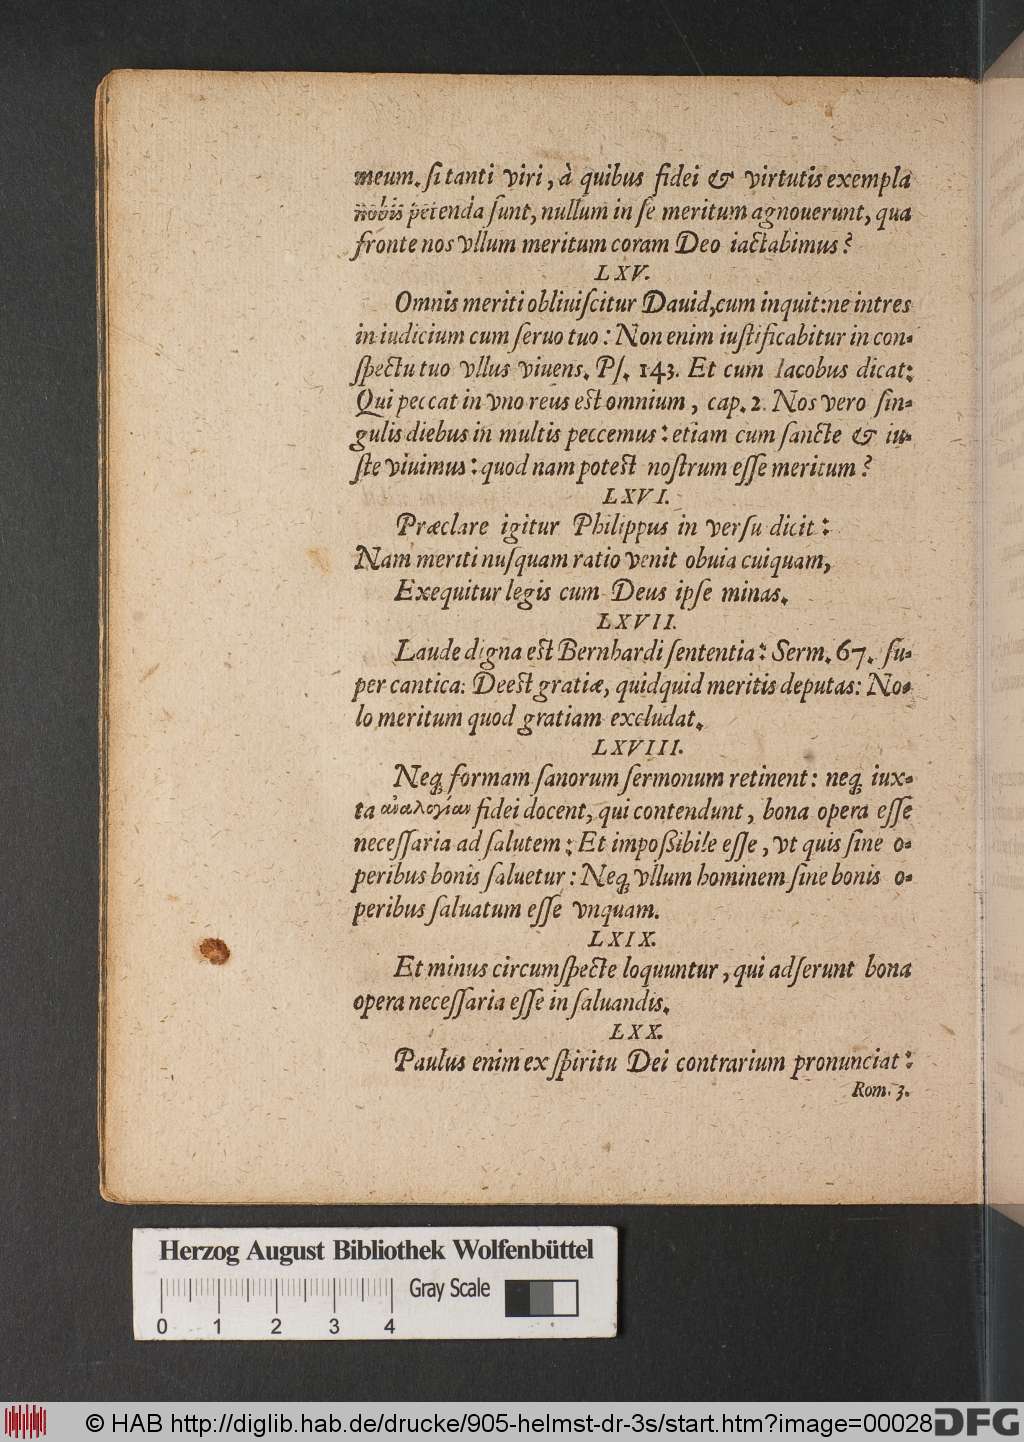 meum. si tanti viri, à quibus fidei & virtutis exempla
nobis petenda sunt, nullum in se meritum agnouerunt, qua
fronte nos vllum meritum coram Deo iactabimus?
LXV.
Omnis meriti obliuiscitur Dauid, cum inquit: ne intres
in iudicium cum seruo tuo: Non enim iustificabitur in con-
spectu tuo vllus viuens. Ps. 143. Et cum Iacobus dicat:
Qui peccat in vno reus est omnium, cap. 2. Nos vero sin-
gulis diebus in multis peccemus: etiam cum sancte & iu-
ste viuimus: quod nam potest nostrum esse meritum?
LXVI.
Præclare igitur Philippus in versu dicit:
Nam meriti nusquam ratio venit obuia cuiquam,
Exequitur legis cum Deus ipse minas.
LXVII.
Laude digna est Bernhardi sententia: Serm. 67. su-
per cantica: Deest gratiæ, quidquid meritis deputas: No-
lo meritum quod gratiam excludat.
LXVIII.
Neq; formam sanorum sermonum retinent: neq; iux-
ta ἀναλογίαν fidei docent, qui contendunt, bona opera esse
necessaria ad salutem: Et impossibile esse, vt quis sine o-
peribus bonis saluetur: Neq; vllum hominem sine bonis o-
peribus saluatum esse vnquam.
LXIX.
Et minus circumspecte loquuntur, qui adserunt bona
opera necessaria esse in saluandis.
LXX.
Paulus enim ex spiritu Dei contrarium pronunciat:
Rom. 3.
Herzog August Bibliothek Wolfenbüttel
Gray Scale
0 1 2 3 4
© HAB http://diglib.hab.de/drucke/905-helmst-dr-3s/start.htm?image=00028
DFG